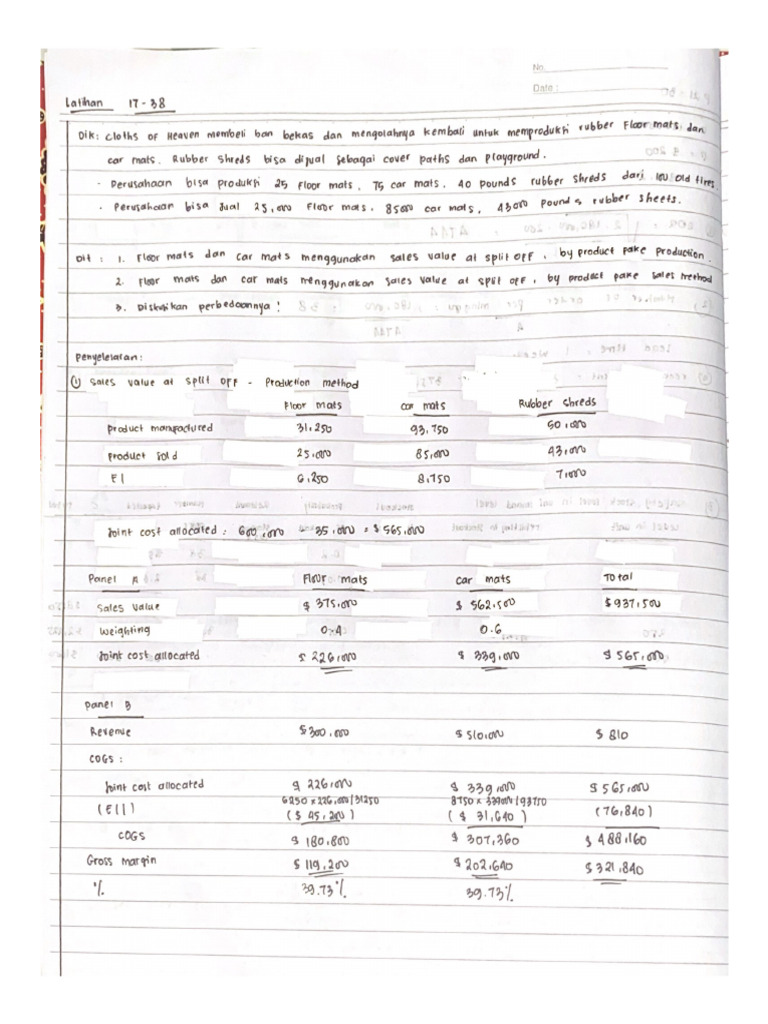 No.
Date :
Latihan 17-38
Dik: Cloths of Heaven membeli ban bekas dan mengolahnya kembali untuk memproduksi rubber floor mats dan
car mats. Rubber shreds bisa dijual sebagai cover paths dan playground.
- Perusahaan bisa produksi 25 floor mats, 75 car mats, 40 pounds rubber shreds dari 100 old tires
- Perusahaan bisa jual 25,000 floor mats. 85000 car mats, 43000 pounds rubber sheets.
Dit : 1. Floor mats dan car mats menggunakan sales value at split off, by product pake production.
2. Floor mats dan car mats menggunakan sales value at split off, by product pake sales method
3. Diskusikan perbedaannya !
Penyelesaian :
(1) Sales value at split off - Production method
Floor mats car mats Rubber shreds
Product manufactured 31.250 93.750 50,000
Product sold 25,000 85,000 43,000
EI 6,250 8,750 7,000
Joint cost allocated : 600,000 - 35,000 = $565,000
Panel A Floor mats car mats Total
Sales value $375,000 $562,500 $937,500
Weighting 0.4 0.6
Joint cost allocated $226,000 $339,000 $565,000
Panel B
Revenue $300,000 $510,000 $810
COGS :
Joint cost allocated $226,000 $339,000 $565,000
6250 x 226,000/31250 8750 x 339000/93750
(EI) ($45,200) ($31,640) (76,840)
COGS $180,800 $307,360 $488,160
Gross margin $119,200 $202,640 $321,840
% 39.73% 39.73%